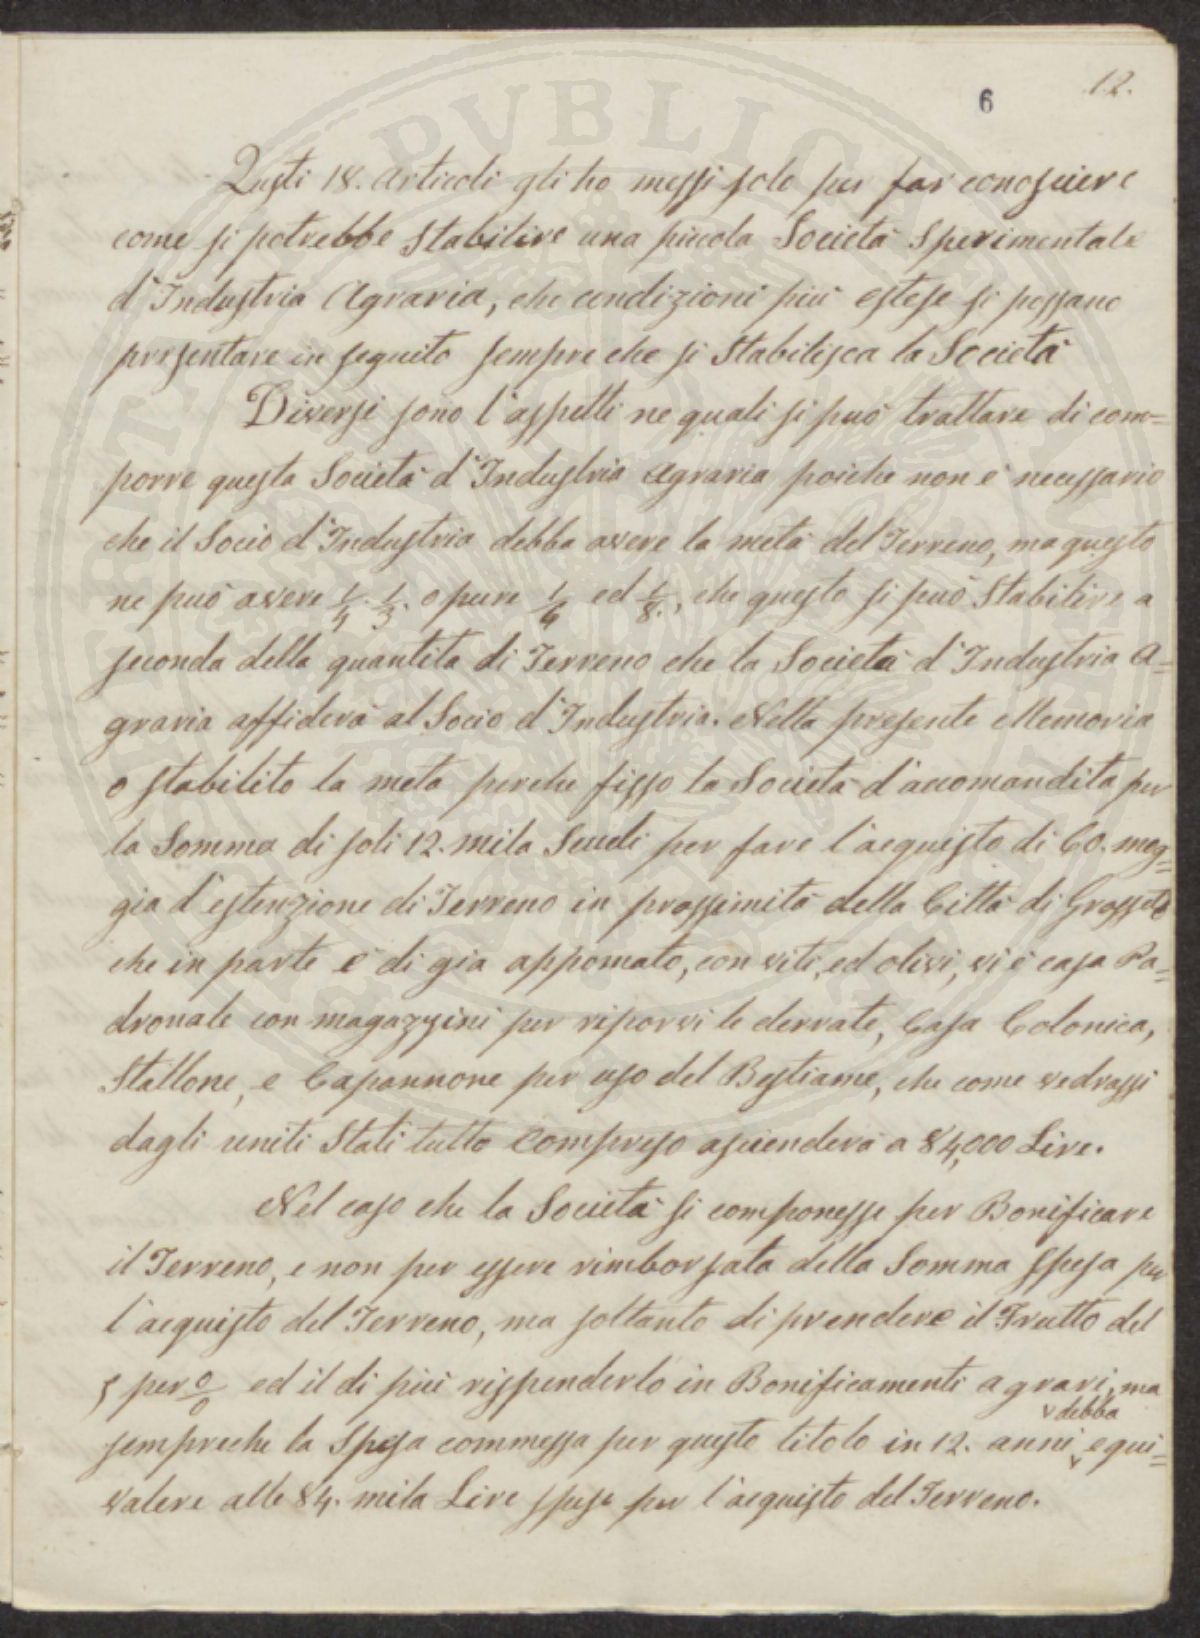 12.
6
Questi 18. Articoli gli ho messi solo per far conosciere
come si potrebbe Stabilire una piccola Società Sperimentale
d'Industria Agraria, che condizioni più estese si possano
presentare in seguito sempre che si Stabilisca la Società
Diversi sono l'aspetti ne quali si può trattare di com=
porre questa Società d'Industria Agraria poiche non è necessario
che il Socio d'Industria debba avere la metà del Terreno, ma questo
ne può avere 1/4. 1/3. o pure 1/6 ed 1/8., che questo si può Stabilire a
seconda della quantita di Terreno che la Società d'Industria A=
graria affiderà al Socio d'Industria. Nella presente Memoria
o stabilito la metà perche fisso la Società d'accomandita per
la Somma di soli 12. mila Scudi per fare l'acquisto di 60. mog=
gia d'estenzione di Terreno in prossimità della Città di Grosseto
che in parte è di gia appomato, con viti, ed olivi, vi è casa Pa=
dronale con magazzini per riporvi le derrate, Casa Colonica,
Stallone, e Capannone per uso del Bestiame, che come vedrassi
dagli uniti Stati tutto compreso asciendera a 84,000 Lire.
Nel caso che la Società si componesse per Bonificare
il Terreno, e non per essere rimborsata della Somma Spesa per
l'acquisto del Terreno, ma soltanto di prendere il Frutto del
5 per 0/0 ed il di più rispenderlo in Bonificamenti agrari, ma
debba
sempreche la Spesa commessa per questo titolo in 12. anni equi=
valere alle 84. mila Lire spese per l'acquisto del Terreno.
PUBLICA